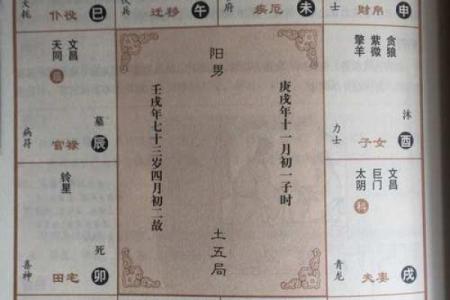 仆役
巳
迁移
午
兵
府
疾厄
未
士
财帛
申
文昌
天同
病符
官禄
墓
辰
铃星
喜神
田宅
死
卯
阳男
庚戌年十一月初一子时
壬戌年七十三岁四月初二故
土五局
贪狼
紫微
擎羊
力士
子女
沐
酉
文昌
巨门
太阴
科
青龙
夫妻
戌